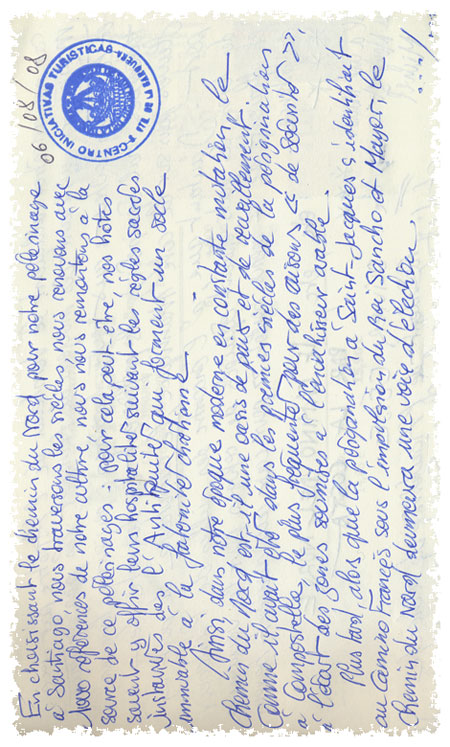 En choisissant le chemin du Nord pour notre pélerinage
06/08/08
CENTRO INICIATIVAS TURISTICAS
à Santiago, nous traversons les siècles, nous renouons avec
nos références de notre culture, nous nous remontons à la
source de ce pélerinages. pour cela peut-être, nos hôtes
savent y offrir leurs hospitalité suivant les règles sacrées
instaurées dès l'Antiquité qui forment un socle
immuable à la fraternité
Ainsi, dans notre époque moderne en constante mutation, le
chemin du Nord est-il une oasis de paix et de recueillement.
Comme il avait été dans les premiers siècles de la pérégrination
à Compostelle, le plus fréquenté pour des raisons << de sécurité >>
à l'écart des zones soumises à l'envahisseur arabe.
Plus tard, alors que la pérégrination à Saint-Jacques s'identifiait
au Camino Francès sous l'impulsion du Roi Sancho el Mayor, le
chemin du Nord demeura une voie d'élection.
.../